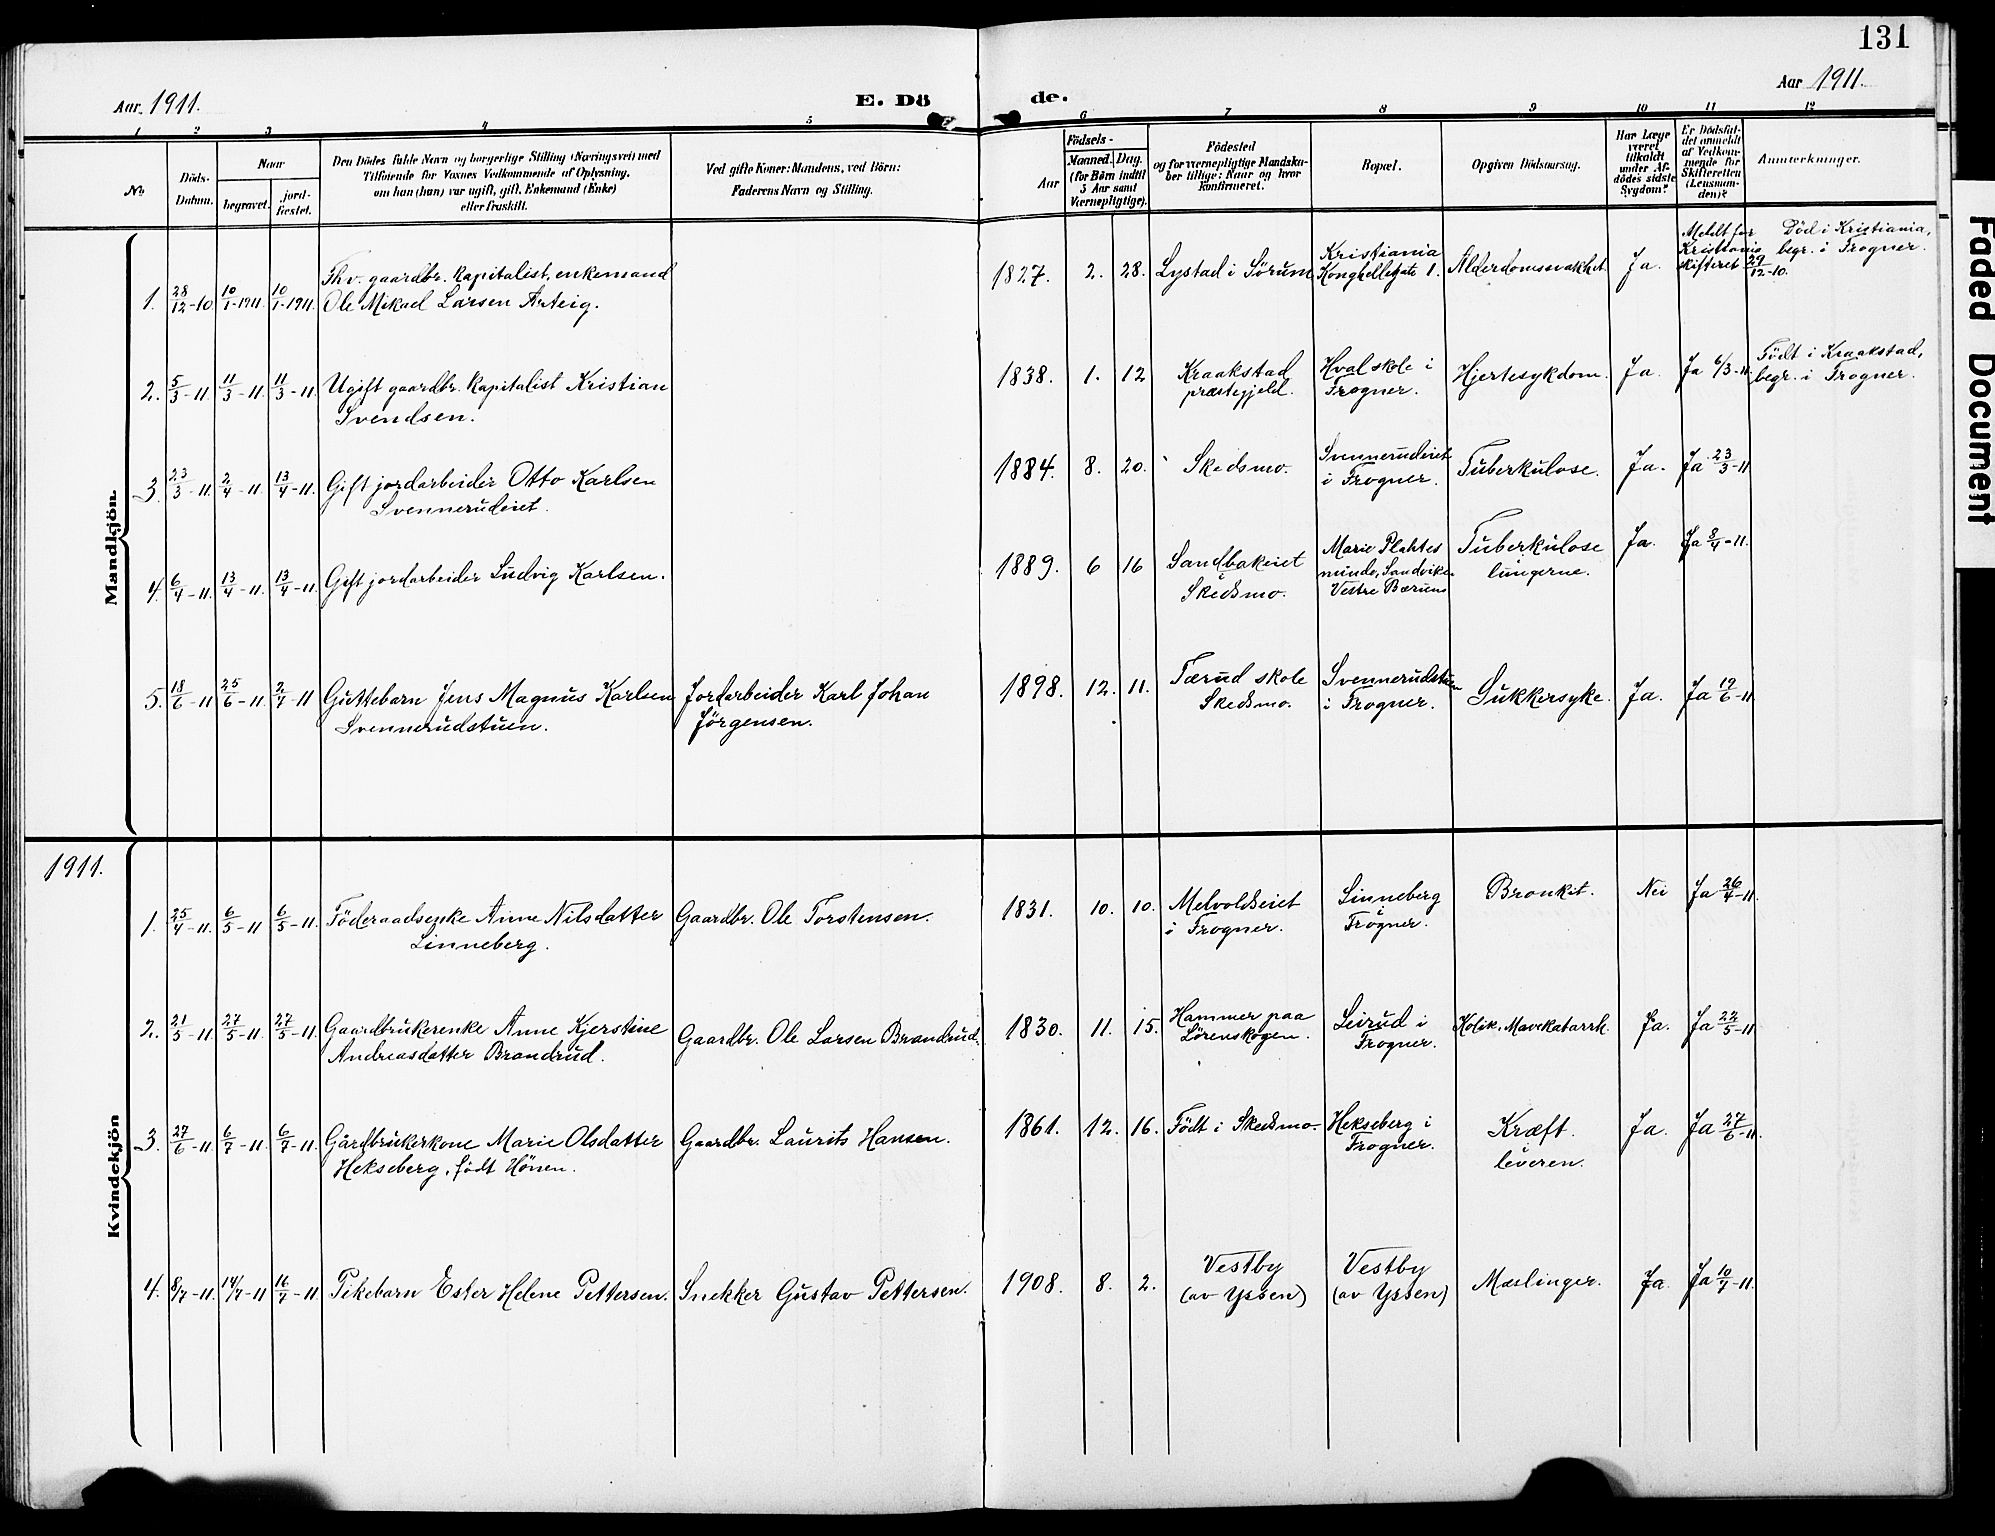 131
Aar 1911.
E. Dö de.
Aar 1911.
1 2 3 4 5 6 7 8 9 10 11 12
No
Döds-Datum.
Naar
begravet.
jord-fæstet.
Den Dödes fulde Navn og borgerlige Stilling (Næringsvei) med
Tilføiende for Voxnes Vedkommende af Oplysning,
om han (hun) var ugift, gift, Enkemand (Enke)
eller fraskilt.
Ved gifte Koner: Mandens, ved Börn:
Faderens Navn og Stilling.
Aar
Födsels-
Maaned. Dag.
(for Börn indtil
5 Aar samt
Værnepligtige).
Födested
og for værnepligtige Mandska-
ber tillige: Naar og hvor
konfirmeret.
Bopæl.
Opgiven Dödsaarsag.
Har Læge
været
tilkaldt
under Af-
dödes sidste
Sygdom?
Er Dödsfal-
det anmeldt
af Vedkom-
mende for
Skifteretten
(Lensman-
den)?
Anmærkninger.
Mandkjön.
1. 28/12-10 10/1-1911. 10/1-1911. Fhv. gaardbr. kapitalist, enkemand
Ole Mikael Larsen Arteig.
1827. 2. 28. Lystad i Sörum Kristiania
Konghellegate 1. Alderdomssvakhet Ja. Meldt for
Kristiania
skifteret 29/12-10.
Död i Kristiania,
begr. i Frogner.
2. 5/3-11 11/3-11 11/3-11 Ugift gaardbr. kapitalist Kristian
Svendsen.
1838. 1. 12 Kraakstad
præstegjeld.
Hval skole i
Frogner.
Hjertesykdom. Ja. Ja 6/3-11.
Födt i Kraakstad,
begr. i Frogner.
3. 23/3-11. 2/4-11 13/4-11. Gift jordarbeider Otto Karlsen
Svennerudeiet.
1884. 8. 20. Skedsmo. Svennerudeiet
i Frogner.
Tuberkulose. Ja. Ja 23/3-11
4. 6/4-11. 13/4-11. 13/4-11 Gift jordarbeider Ludvig Karlsen.
1889. 6 16 Sandbakeiet
i
Skedsmo.
Marie Plahtes
minde, Sandviken
Vestre Bærum
Tuberkulose
lungerne.
Ja. Ja 8/4-11.
5. 18/6-11 25/6-11. 2/7-11 Guttebarn Jens Magnus Karlsen
Svennerudstuen.
Jordarbeider Karl Johan
Jörgensen.
1898. 12. 11. Færud skole
Skedsmo.
Svennerudstuen
i Frogner.
Sukkersyke. Ja. Ja 19/6-11
1911.
Kvindekjön
1. 25/4-11. 6/5-11 6/5-11. Föderaadsenke Anne Nilsdatter
Linneberg.
Gaardbr. Ole Torstensen.
1831. 10. 10. Melvoldseiet
i Frogner.
Linneberg
i
Frogner.
Bronkit. Nei Ja 26/4-11
2. 21/5-11 27/5-11. 27/5-11 Gaardbrukerenke Anne Kjerstine
Andreasdatter Brandrud.
Gaardbr. Ole Larsen Brandrud.
1830. 11. 15. Hammer paa
Lörenskogen.
Leirud i
Frogner.
Kolik. Mavekatarrh. Ja. Ja 22/5-11
3. 27/6-11. 6/7-11. 6/7-11. Gårdbrukerkone Marie Olsdatter
Hekseberg, födt Hönen.
Gaardbr. Laurits Hansen.
1861. 12. 16. Födt i Skedsmo. Hekseberg i
Frogner.
Kræft.
leveren.
Ja. Ja 27/6-11
4. 8/7-11. 14/7-11 16/7-11 Pikebarn Ester Helene Pettersen. Snekker Gustav Pettersen.
1908. 8. 2. Vestby
(av Yssen)
Vestby
(av Yssen)
Mæslinger. Ja. Ja 10/7-11.
Faded Document